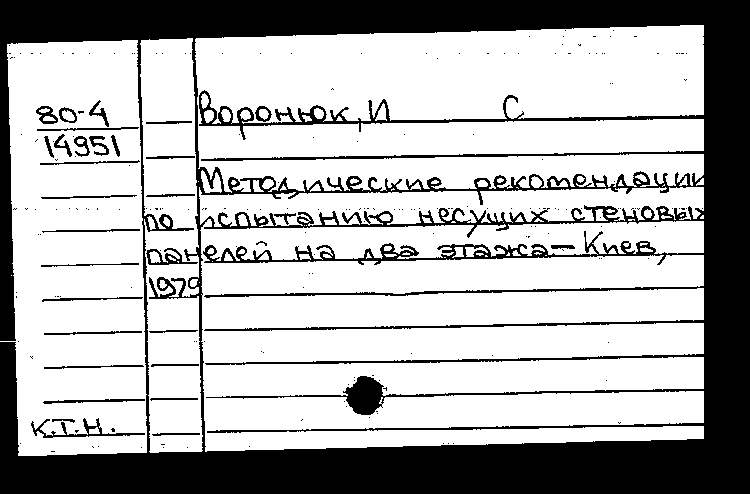 80-4 Воронюк, И С
14951
Методические рекомендации
по испытанию несущих стеновых
панелей на два этажа - Киев,
1979
К.Т.Н.